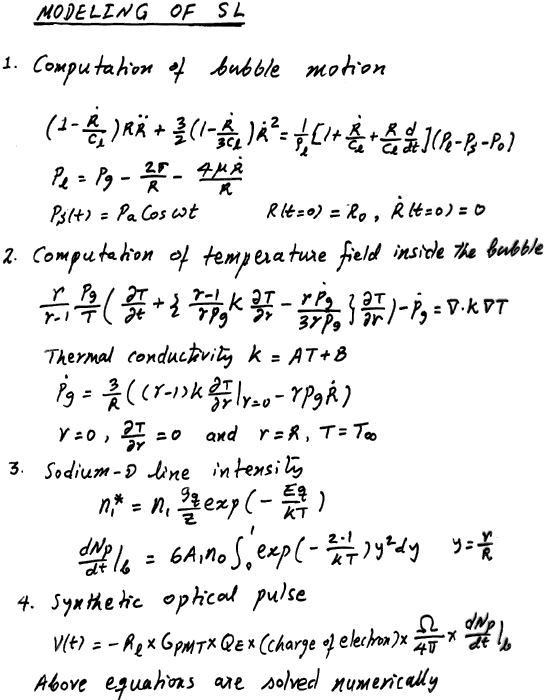 MODELING OF SL
1. Computation of bubble motion
(1-Ṙ/C_l)RR̈ + 3/2(1-Ṙ/3C_l)Ṙ² = 1/ρ_l[1+Ṙ/C_l+R/C_l d/dt](P_l-P_s-P_0)
P_l = P_g - 2σ/R - 4μṘ/R
P_s(t) = P_a Cos ωt R(t=0) = R_0, Ṙ(t=0) = 0
2. Computation of temperature field inside the bubble
γ/γ-1 P_g/T (∂T/∂t + {γ-1/γP_g K ∂T/∂r - rṖ_g/3γP_g} ∂T/∂r) - Ṗ_g = ∇·K∇T
Thermal conductivity K = AT+B
Ṗ_g = 3/R ((γ-1)K ∂T/∂r|_r=0 - γP_gṘ)
r=0, ∂T/∂r = 0 and r=R, T=T∞
3. Sodium-D line intensity
n_1* = n_1 g_q/Z exp(- E_q/KT)
dN_p/dt|_b = 6A_1n_0 ∫_0^1 exp(- 2·1/KT) y² dy y = r/R
4. Synthetic optical pulse
V(t) = -R_l × G_PMT × Q_E × (charge of electron) × Ω/4π × dN_p/dt|_b
Above equations are solved numerically